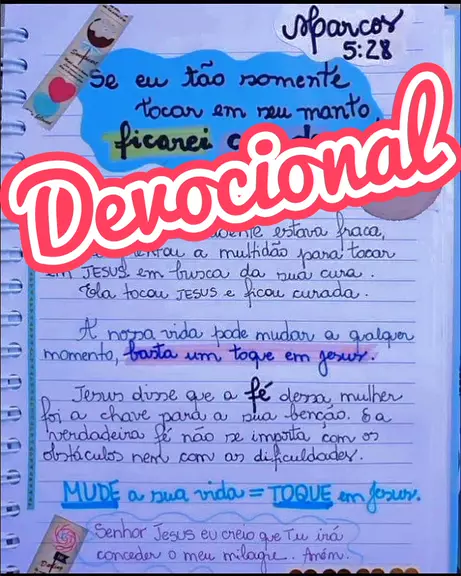 Marcos
5:28
Se eu tão somente
tocar em seu manto,
ficarei
Devocional
estava fraca,
a multidão para tocar
em JESUS em busca da sua cura.
Ela tocou JESUS e ficou curada.
A nossa vida pode mudar a qalquer
momento, basta um toque em Jesus.
Jesus disse que a fé dessa mulher
foi a chave para a sua benção. E a
verdadeira fé não se importa com os
obstáculos nem com as dificuldades.
MUDE a sua vida = TOQUE em Jesus.
Senhor Jesus eu creio que Tu irá
conceder o meu milagre.. Amém.